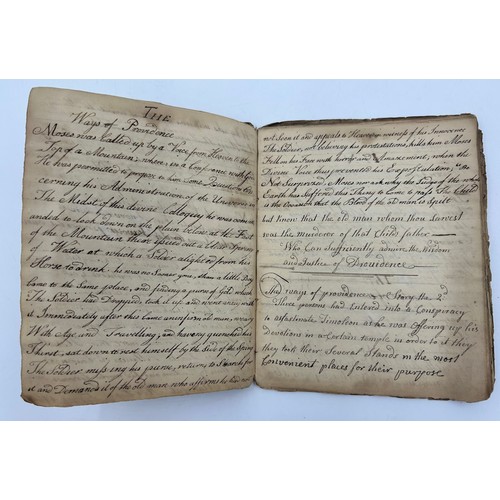 THE
Ways of Providence
Moses was Called up by a Voice from Heaven to the
Top of a Mountain, where in a Conference with
He was permitted to propose to him Some Questions Con
cerning his Administration of the Universe in
The Midst of this divine Colloquy he was comm
anded to look down on the plain below at the Foot
of the Mountain there Issued out a Clear Spring
of Water at which a Soldier alighted from his
Horse to drink. he was no Sooner gone, than a little Boy
Came to the Same place, and finding a purse of Gold which
The Soldier had Dropped, took it up and went away with
it Immediately after this Came an infirm old man, weary
With Age and Travelling, and having quenched his
Thirst, sat down to rest himself by the Side of the Spring
The Soldier missing his purse, returns to Search for
it and Demands it of the old man who affirms he had not
not Seen it and appeals to Heaven in witness of his Innocence
The Soldier, not believing his protestations, kills him Moses
Fell on his Face with horror and Amazement, when the
Divine Voice thus prevented his Expostulation,
Not Surprised, Moses nor ask why the Judge of the whole
Earth has Suffered this Thing to Come to pass The Child
is the Occasion that the Blood of the old man is Spilt
but know that the old man whom thou Sawest
was the murderer of that Child's father
Who Can Sufficiently admire the Wisdom
and Justice of Providence
The ways of providence Story the 2d
Three persons had Entered into a Conspiracy
to assasinate Timoleon as he was Offering up his
Devotions in a Certain temple in order to it they
they took their Several Stands in the most
Convenient places for their purpose